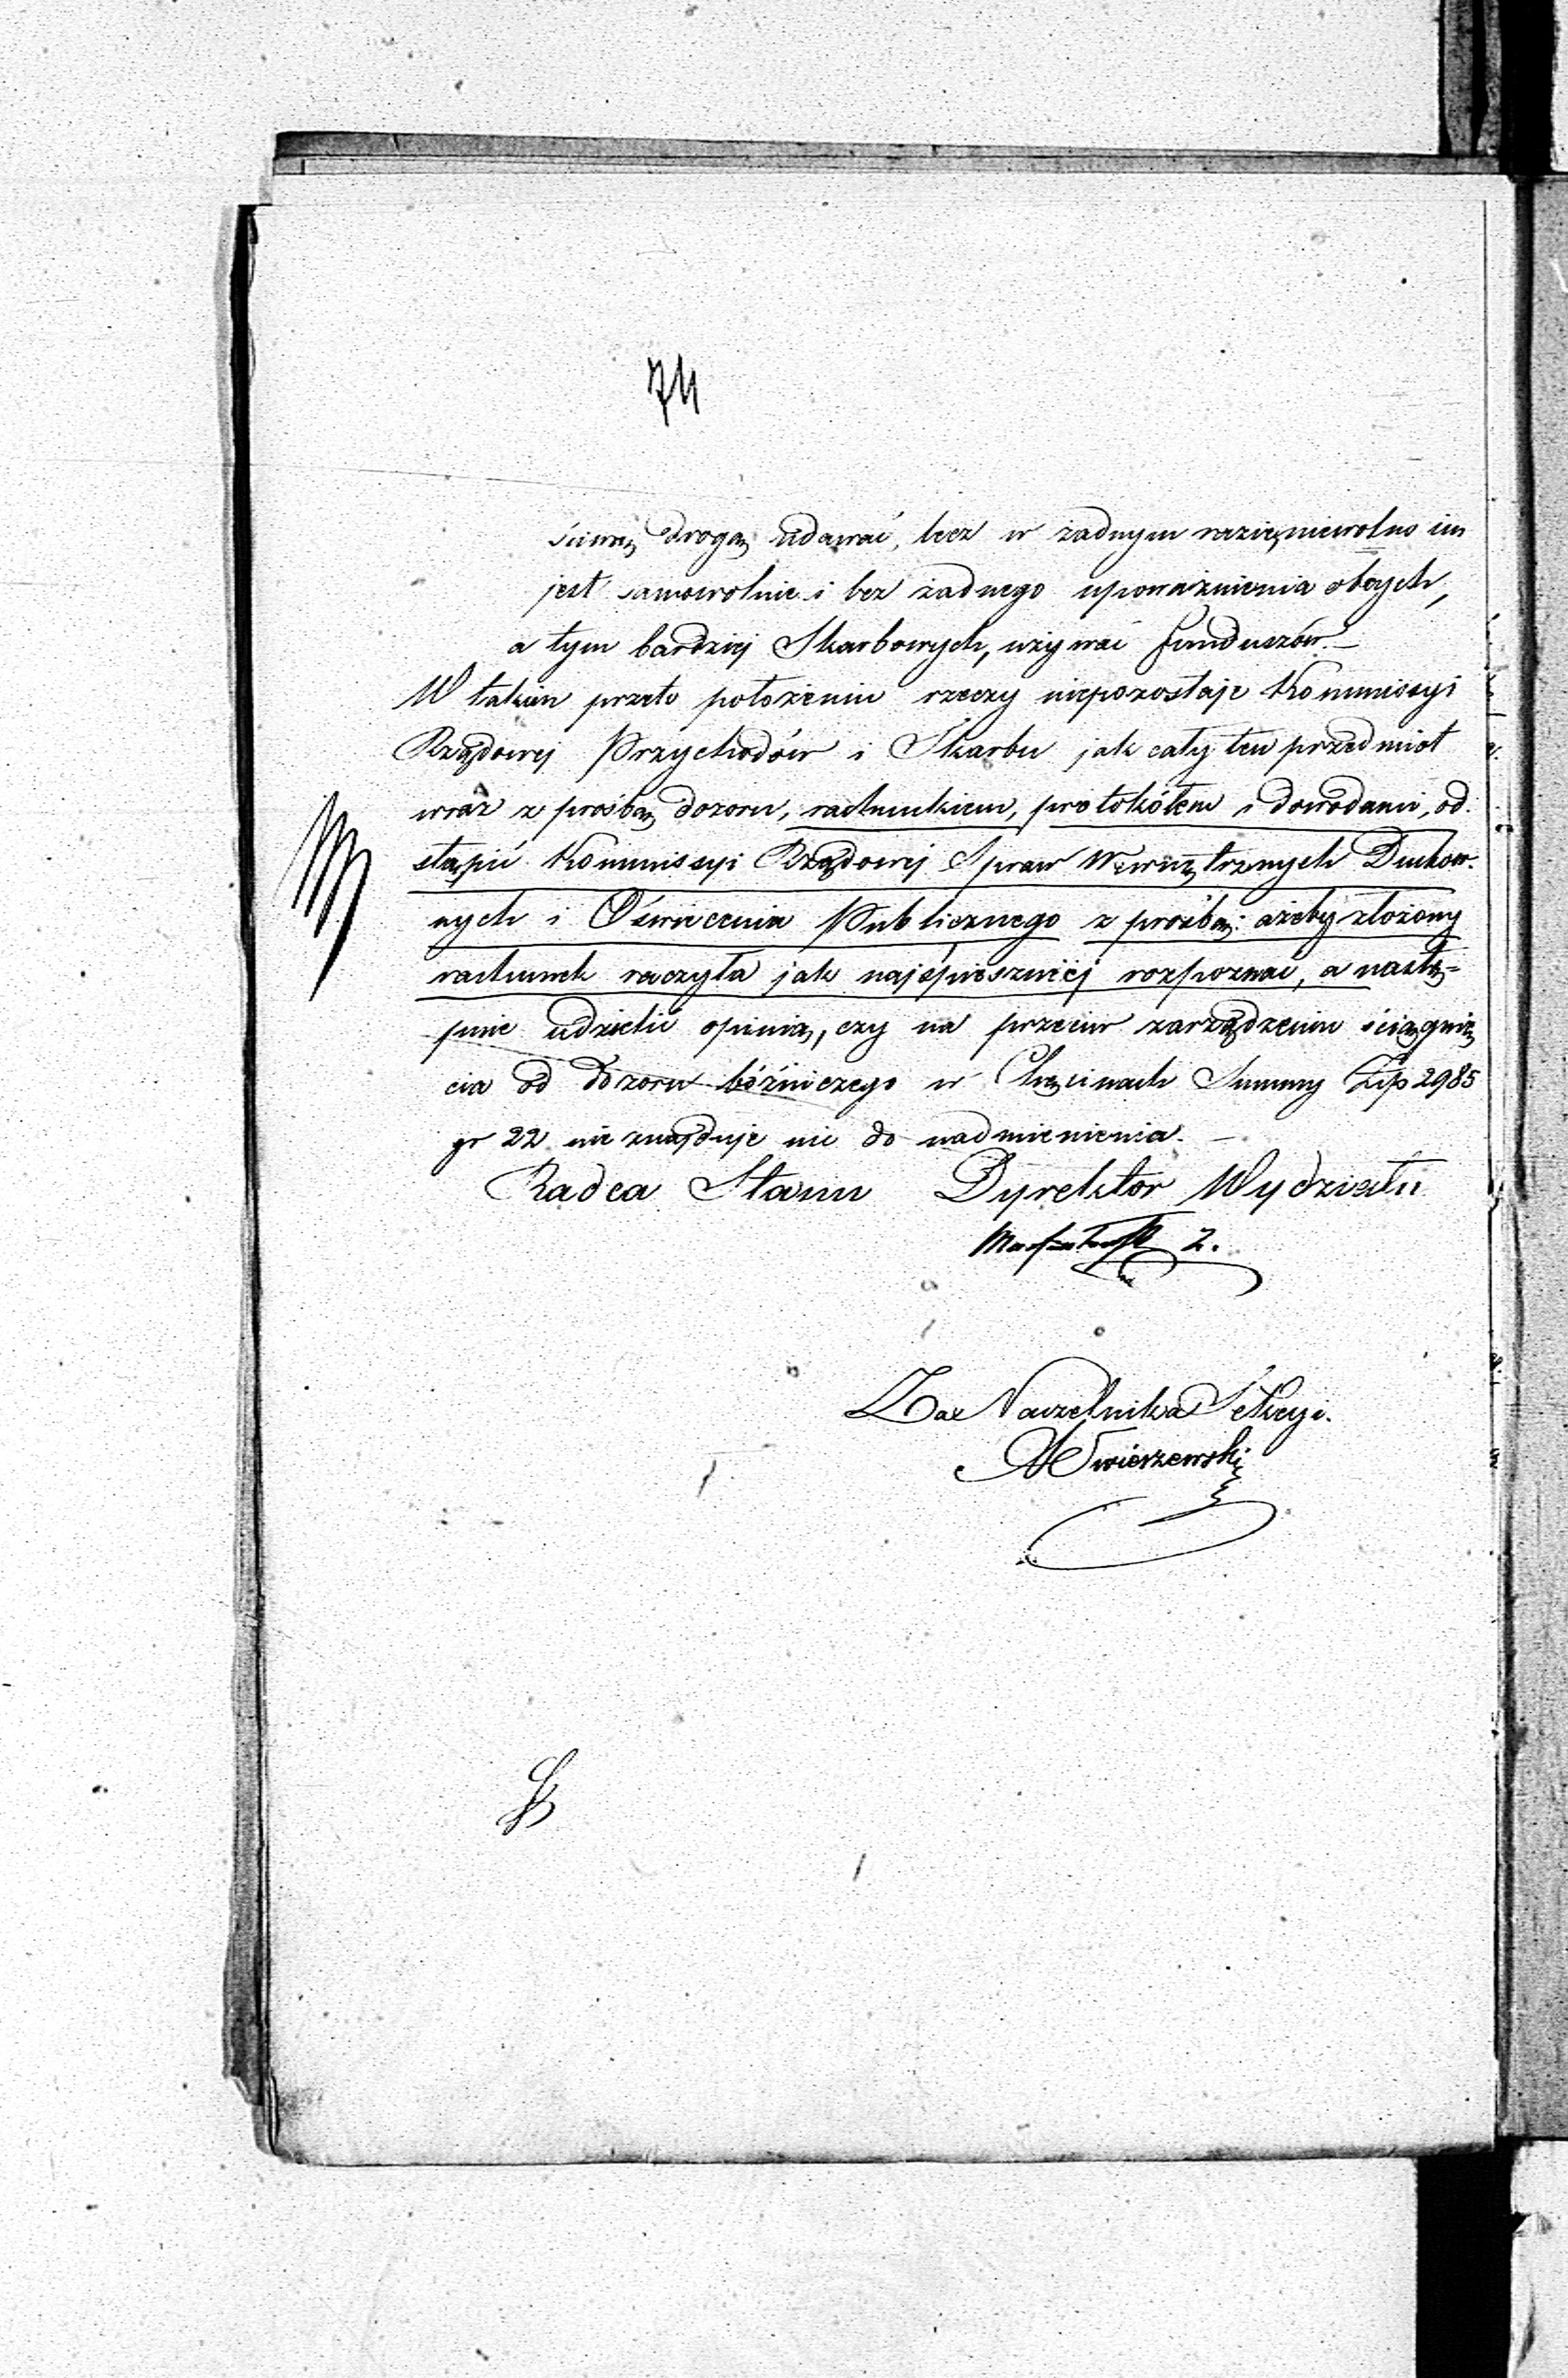 74
ściwą drogą udawać, lecz w żadnym razie niewolno im
jest samowolnie i bez żadnego upoważnienia obcych,
a tym bardziej Skarbowych, używać funduszów. —
W takim przeto położeniu rzeczy niepozostaje Kommissyi
Rządowej Przychodów i Skarbu jak cały ten przedmiot
wraz z prośbą dozoru, rachunkiem, protokółem i dowodami, od
stąpić Kommissyi Rządowej Spraw Wewnętrznych Duchow-
nych i Oświecenia Publicznego z prośbą: ażeby złożony
rachunek raczyła jak najśpieszniej rozpoznać, a nastę=
pnie udzielić opinią, czy na przeciw zarządzeniu ściągnię
cia od dozoru bóźniczego w Chęcinach Summy Złp 2985
gr 22 nie znajduje nic do nadmienienia. —
Radca Stanu Dyrektor Wydziału
Za Naczelnika Sekcyi.